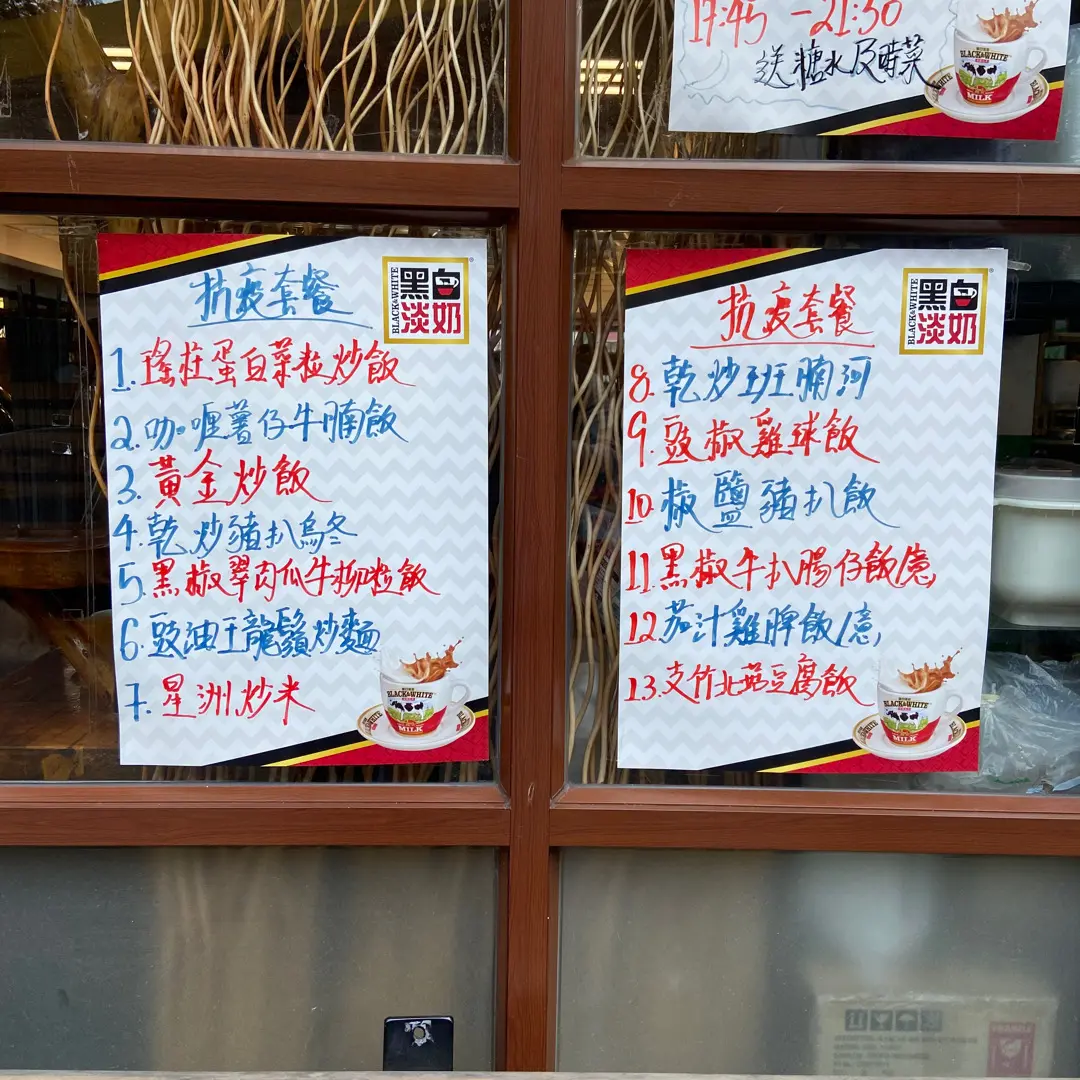 17:45 - 21:30
送糖水及時菜
BLACK&WHITE
MILK
抗疫套餐
BLACK&WHITE
黑白
淡奶
1. 瑤柱蛋白菜粒炒飯
2. 咖喱薯仔牛腩飯
3. 黃金炒飯
4. 乾炒豬扒烏冬
5. 黑椒翠肉瓜牛柳粒飯
6. 豉油王龍鬚炒麵
7. 星洲炒米
BLACK&WHITE
MILK
抗疫套餐
BLACK&WHITE
黑白
淡奶
8. 乾炒班腩河
9. 豉椒雞球飯
10. 椒鹽豬扒飯
11. 黑椒牛扒腸仔飯/意
12. 茄汁雞脾飯/意
13. 支竹北菇豆腐飯
BLACK&WHITE
MILK